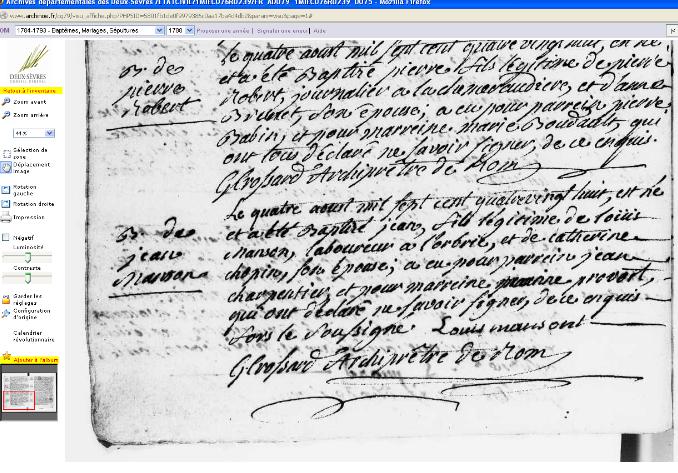 Archives départementales des Deux-Sèvres
Mozilla Firefox
www.archinoe.fr
1784-1793 - Baptêmes, Mariages, Sépultures
1788
Proposer une année | Signaler une erreur | Aide
DEUX-SÈVRES
Retour à l'inventaire
Zoom avant
Zoom arrière
44%
Sélection de zone
Déplacement image
Rotation gauche
Rotation droite
Impression
Négatif
Luminosité
Contraste
Garder les réglages
Configuration d'origine
Calendrier révolutionnaire
Ajouter à l'album
B. de
pierre
Robert
Le quatre aoust mil sept cent quatre vingt huit, est né
et a été Baptisé pierre, fils légitime de pierre
Robert, journalier a et d'anne
Brunet, son épouse; a eu pour parrein pierre
Babin, et pour marreine marie Boudault, qui
ont tous déclaré ne savoir signer, de ce enquis.
Archiprêtre de Rom
B. de
jean
Manson
Le quatre aoust mil sept cent quatre vingt huit, est né
et a été Baptisé jean, fils légitime de louis
manson, laboureur a et de catherine
chopin, son épouse; a eu pour parrein jean
charpentier, et pour marreine provost,
qui ont déclaré ne savoir signer, de ce enquis
fors le soussigné. Louis mansont
Archiprêtre de Rom